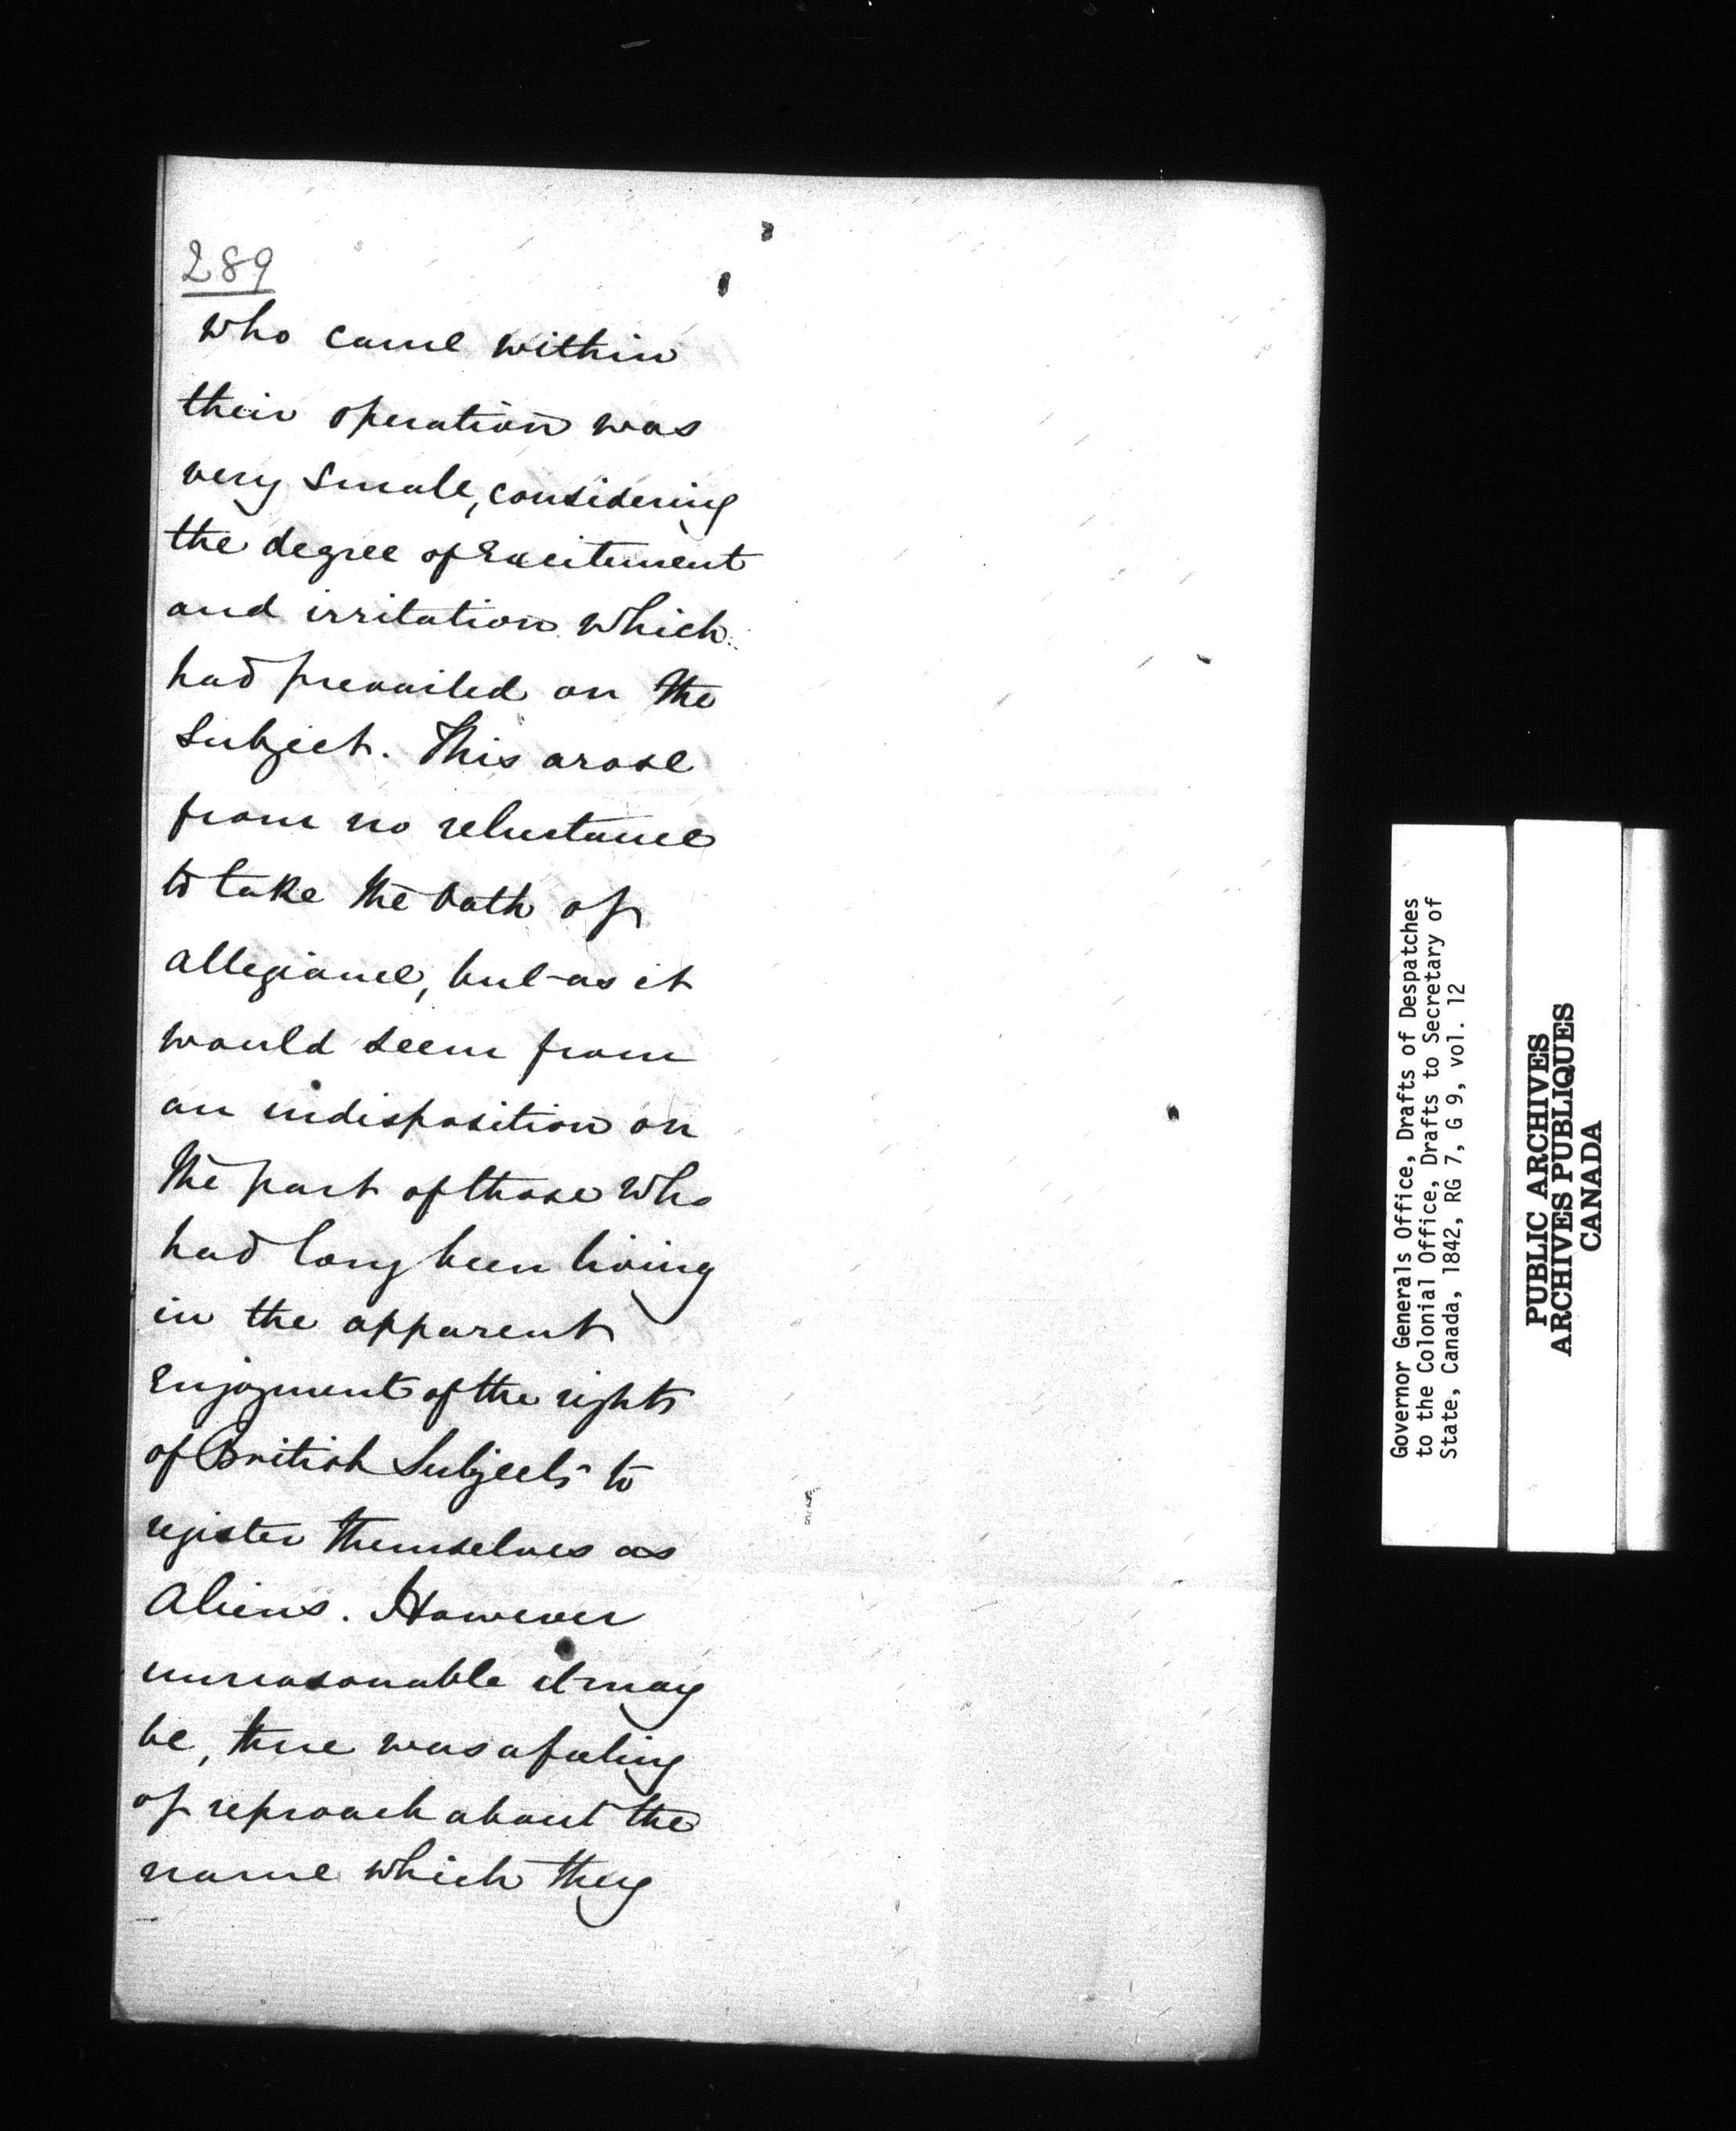 289
who came within
their operation was
very small, considering
the degree of Excitement
and irritation which
had prevailed on the
Subject. This arose
from no reluctance
to take the Oath of
Allegiance, but as it
would seem from
an indisposition on
the part of those who
had long been living
in the apparent
Enjoyment of the rights
of British Subjects to
register themselves as
Aliens. However
unreasonable it may
be, there was a feeling
of reproach about the
name which they
Governor Generals Office, Drafts of Despatches
to the Colonial Office, Drafts to Secretary of
State, Canada, 1842, RG 7, G 9, vol. 12
PUBLIC ARCHIVES
ARCHIVES PUBLIQUES
CANADA